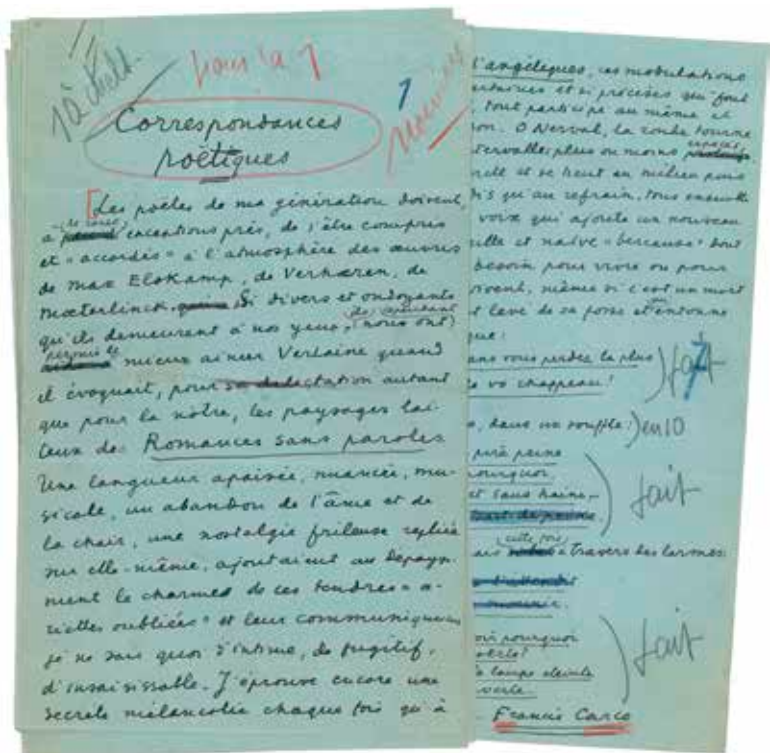 pour la 1
1
Correspondances
poëtiques
[Les poètes de ma génération doivent,
à de rares exceptions près, de s'être compris
et "accordés" à l'atmosphère des œuvres
de Max Elskamp, de Verhæren, de
Mæterlinck. Si divers et ondoyants
qu'ils demeurent à nos yeux, ils (nous ont) cependant
permis de mieux aimer Verlaine quand
il évoquait, pour sa délectation autant
que pour la nôtre, les paysages lai-
teux des Romances sans paroles
Une langueur apaisée, nuancée, mu-
sicale, un abandon de l'âme et de
la chair, une nostalgie frileuse repliée
sur elle-même, ajoutaient au dépayse-
ment le charme de ces tendres "a-
riettes oubliées" et leur communiquaient
je ne sais quoi d'intime, de fugitif,
d'insaisissable. J'éprouve encore une
secrète mélancolie chaque fois qu'à
l'angéliques, ces modulations
et si précises qui font
tout participe au même et
on. O Nerval, la ronde tourne
tervalles plus ou moins espacés
et se tient au milieu pour
dis qu'au refrain, tous ensuite
voix qui ajoute un nouveau
et naïve "berceuse" dont
besoin pour vivre ou pour
même si c'est un mort
t lève de sa fosse et entonne
que:
ans vous perdez la plus
vo chappeau!
) fait
7
, dans un souffle:) en 10
pire peine
pourquoi
et sans haine,
) fait
cette fois, à travers des larmes:
oir pourquoi
la lampe éteinte
verte.
) fait
Francis Carco